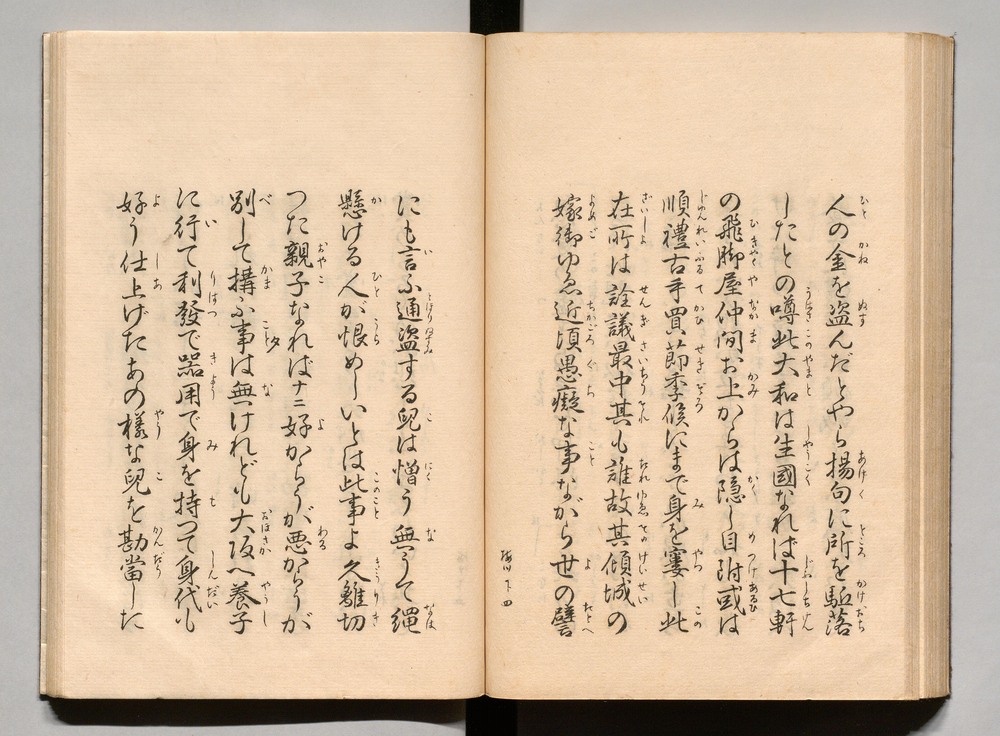 人の金を盗んだとやら揚句に所を駈落
したとの噂此大和は生國なれば十七軒
の飛脚屋仲間お上からは隠し目附或は
順禮古手買節季候にまで身を窶し此
在所は詮議最中其も誰故其傾城の
嫁御ゆゑ近頃愚癡な事ながら世の譬
梅川 下ノ四
にも言ふ通盗する兒は憎う無うて縄
懸ける人が恨めしいとは此事よ久離切
つた親子なればナニ好からうが悪からうが
別して搆ふ事は無けれども大坂へ養子
に行て利發で器用で身を持つて身代も
好う仕上げたあの様な兒を勘當した